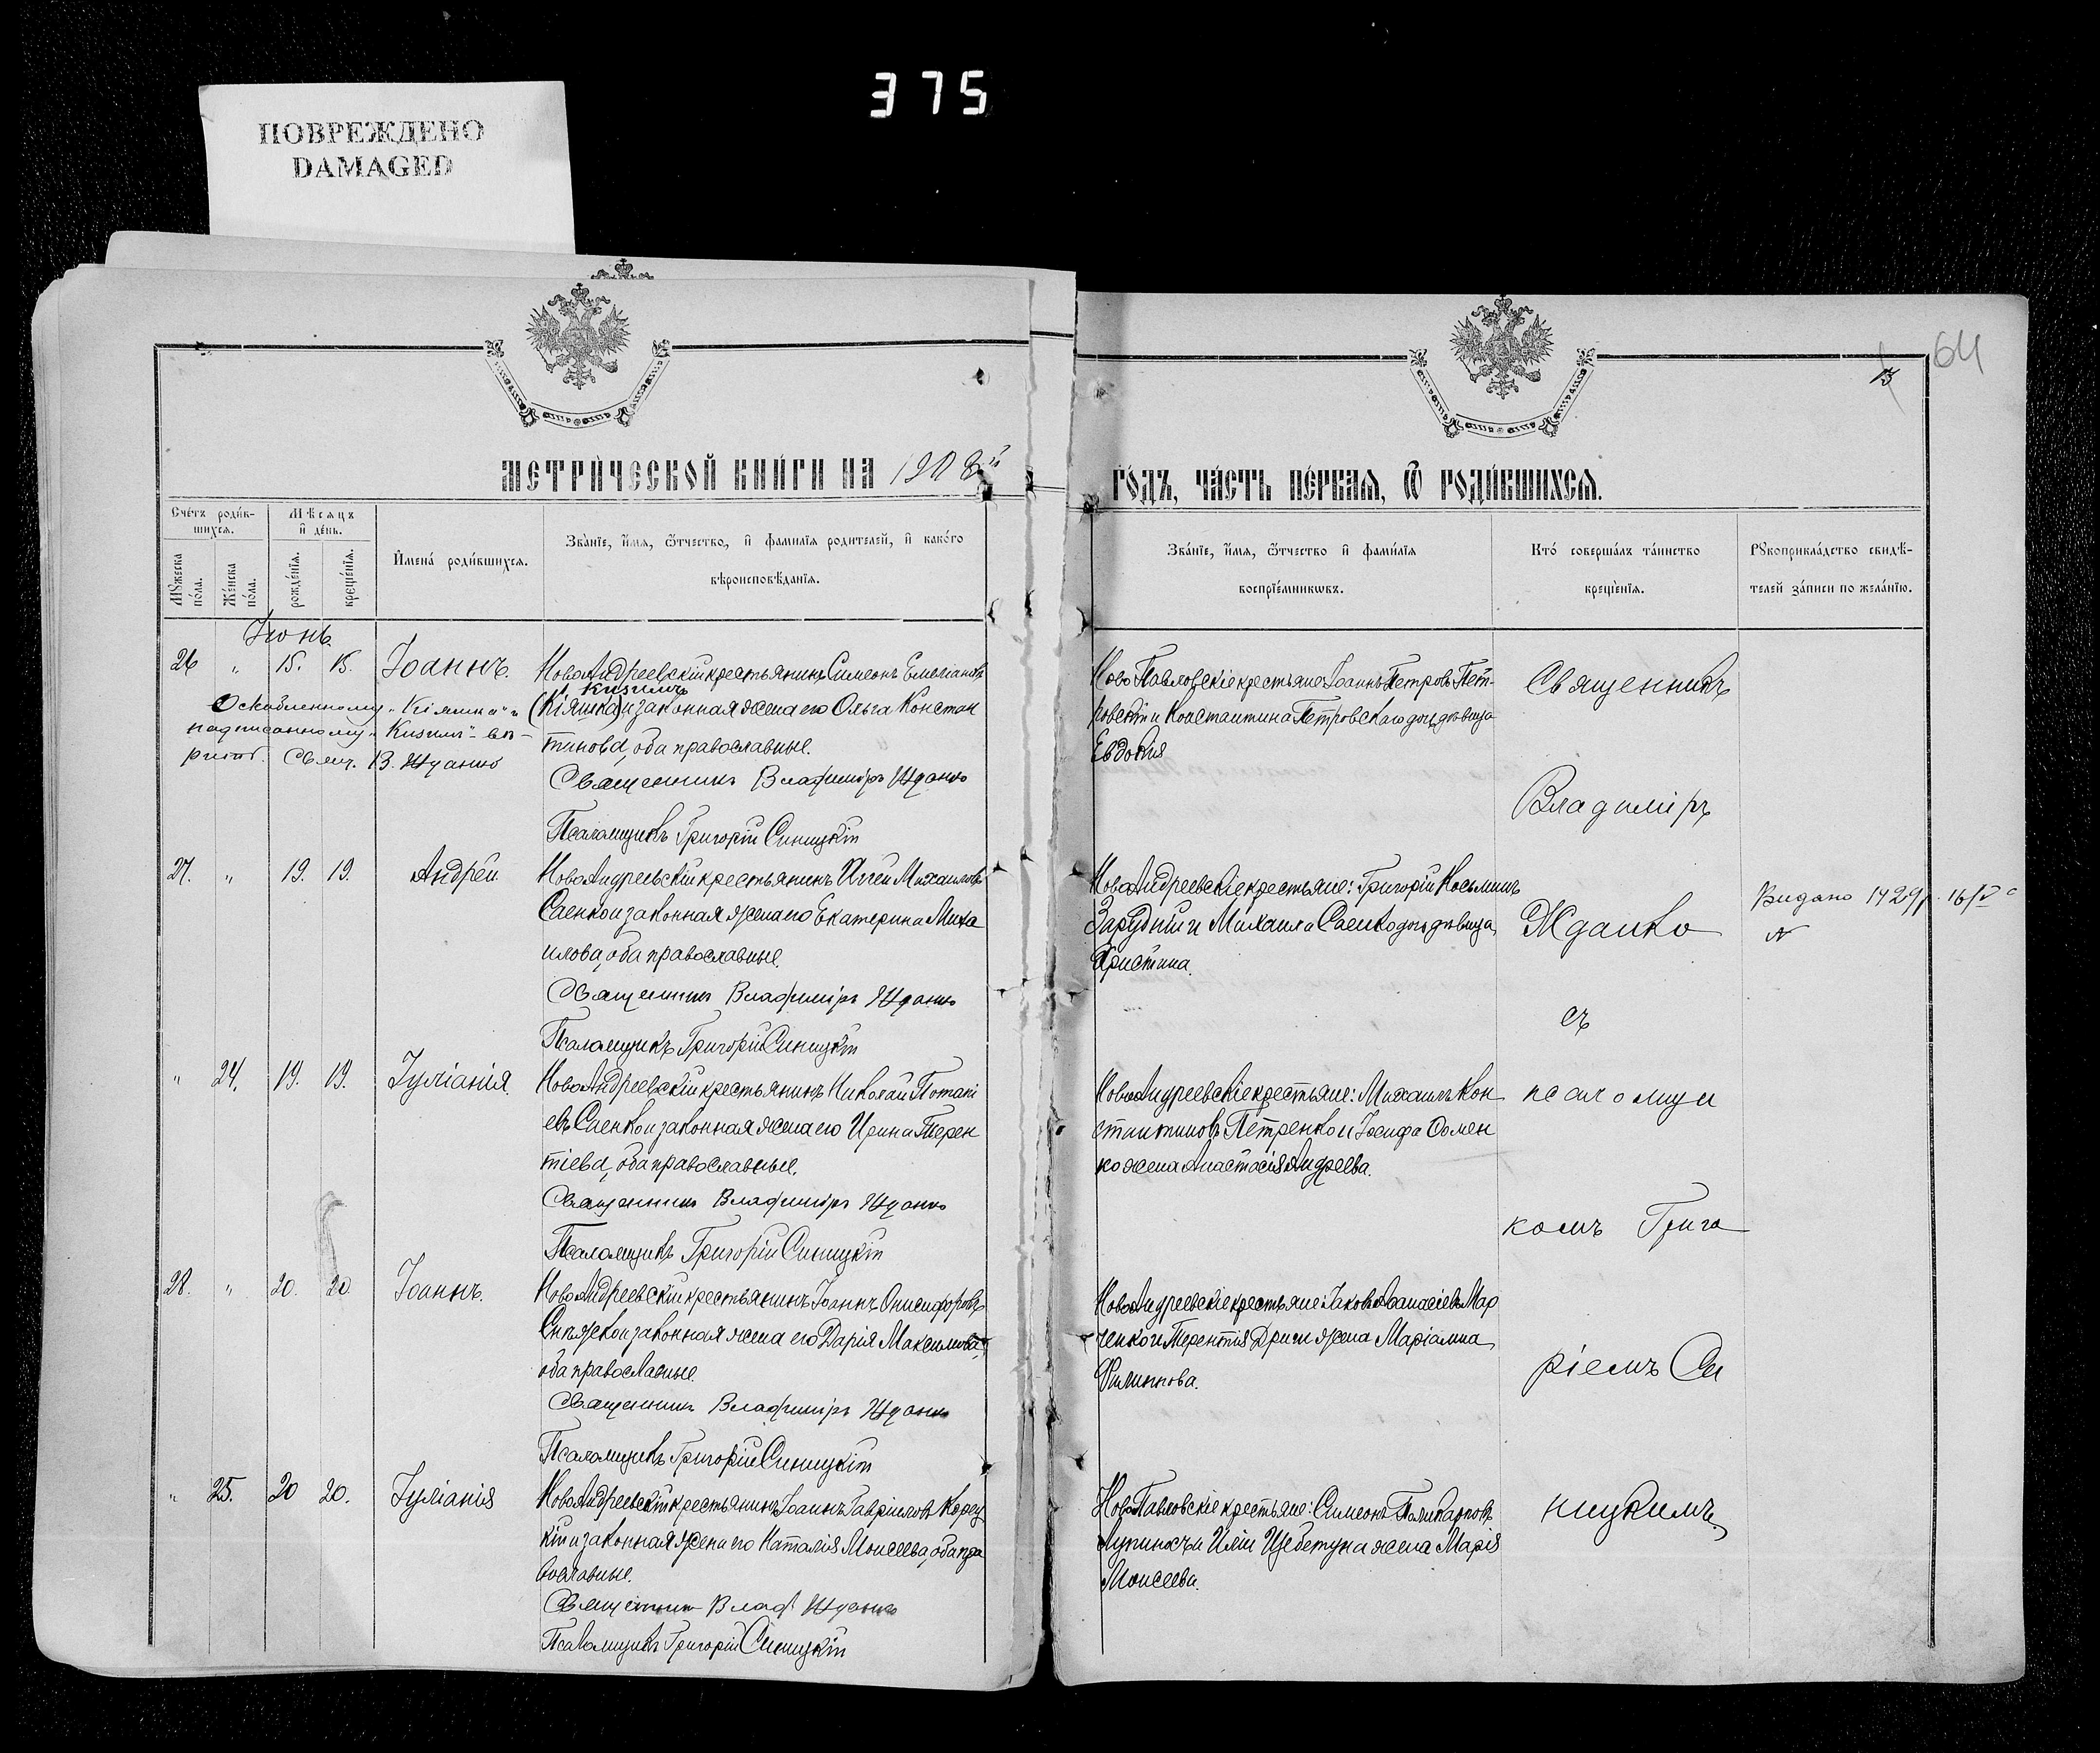 375
ПОВРЕЖДЕНО
DAMAGED
64
13
МЕТРИ́ЧЕСКОЙ КНИ́ГИ НА 1908й
ГО́ДЪ, ЧА́СТЬ ПЕ́РВАЯ, Ѿ РОДИ́ВШИХСЯ.
Сче́тъ роди́в-
шихся.
Мѣ́сяцъ
и҆ де́нь.
Мꙋ́жеска
по́ла.
Же́нска
по́ла.
рожде́нїя.
креще́нїя.
И҆мена̀ роди́вшихся.
Зва́нїе, и҆́мя, ѻ҆́тчество, и҆ фами́лїя роди́телей, и҆ како́го
вѣроисповѣ́данїя.
Зва́нїе, и҆́мя, ѻ҆́тчество и҆ фами́лїя
воспрїе́мникѡвъ.
Кто̀ соверша́лъ та́инство
креще́нїя.
Рꙋкоприкла́дство свидѣ́-
телей за́писи по жела́нїю.
Іюнь.
26 " 15. 15. Іоаннъ.
НовоАндреевскій крестьянинъ Симеонъ Емеліановъ
Кизимъ
(Кіяшко) и законная жена его Ольга Констан
тинова, оба православные.
Священникъ Владиміръ Жданко
Псаломщикъ Григорій Синицкій
Оскобленному "Кіяшко" и
надписанному "Кизимъ" вѣ-
рить. Свящ. В. Жданко
НовоПавловскіе крестьяне: Іоаннъ Петровъ Пет-
ровскій и Константина Петровскаго дочь дѣвица
Евдокія
Священникъ
Владиміръ
27. " 19. 19. Андрей
НовоАндреевскій крестьянинъ Иггей Михаиловъ
Саенко и законная жена его Екатерина Миха
илова, оба православные.
Священникъ Владиміръ Жданко
Псаломщикъ Григорій Синицкій
НовоАндреевскіе крестьяне: Григорій Косьминъ
Зарудній и Михаила Саенко дочь дѣвица,
Христина.
Жданко
Видано 1929р. 16/V
N
съ
" 24. 19. 19. Іуліанія.
НовоАндреевскій крестьянинъ Николай Потапі
евъ Саенко и законная жена его Ирина Терен
тіева, оба православные.
Священникъ Владиміръ Жданко
Псаломщикъ Григорій Синицкій
НовоАндреевскіе крестьяне: Михаилъ Кон
стантиновъ Петренко и Іосифа Фомен
ко жена Анастасія Андреева.
псаломщи
комъ Григо
28. " 20. 20. Іоаннъ.
НовоАндреевскій крестьянинъ Іоаннъ Онисифоровъ
Снѣжко и законная жена его Дарія Максимова,
оба православные.
Священникъ Владиміръ Жданко
Псаломщикъ Григорій Синицкій
НовоАндреевскіе крестьяне: Іаковъ Аѳанасіевъ Мар
ченко и Терентія Дриги жена Маріамна
Филиппова.
ріемъ Си
" 25. 20 20. Іуліанія
НовоАндреевскій крестьянинъ Іоаннъ Гавріиловъ Корец
кій и законная жена его Наталія Моисеева, оба пра
вославные.
Священникъ Влад. Жданко
Псаломщикъ Григорій Синицкій
НовоПавловскіе крестьяне: Симеонъ Поликарповъ
Лупиносъ и Иліи Щебетуна жена Марія
Моисеева.
ницкимъ.